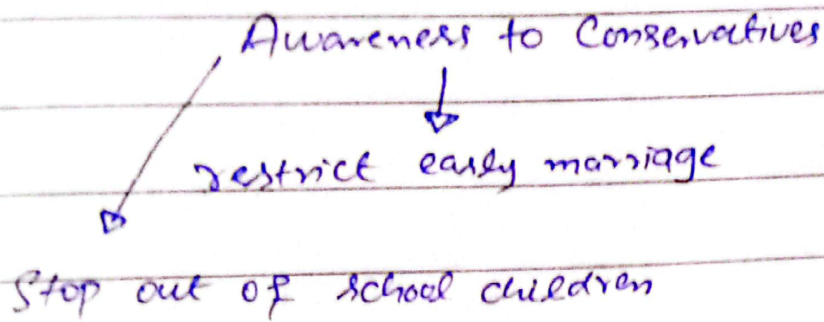 Awareness to Conservatives
restrict early marriage
Stop out of school children